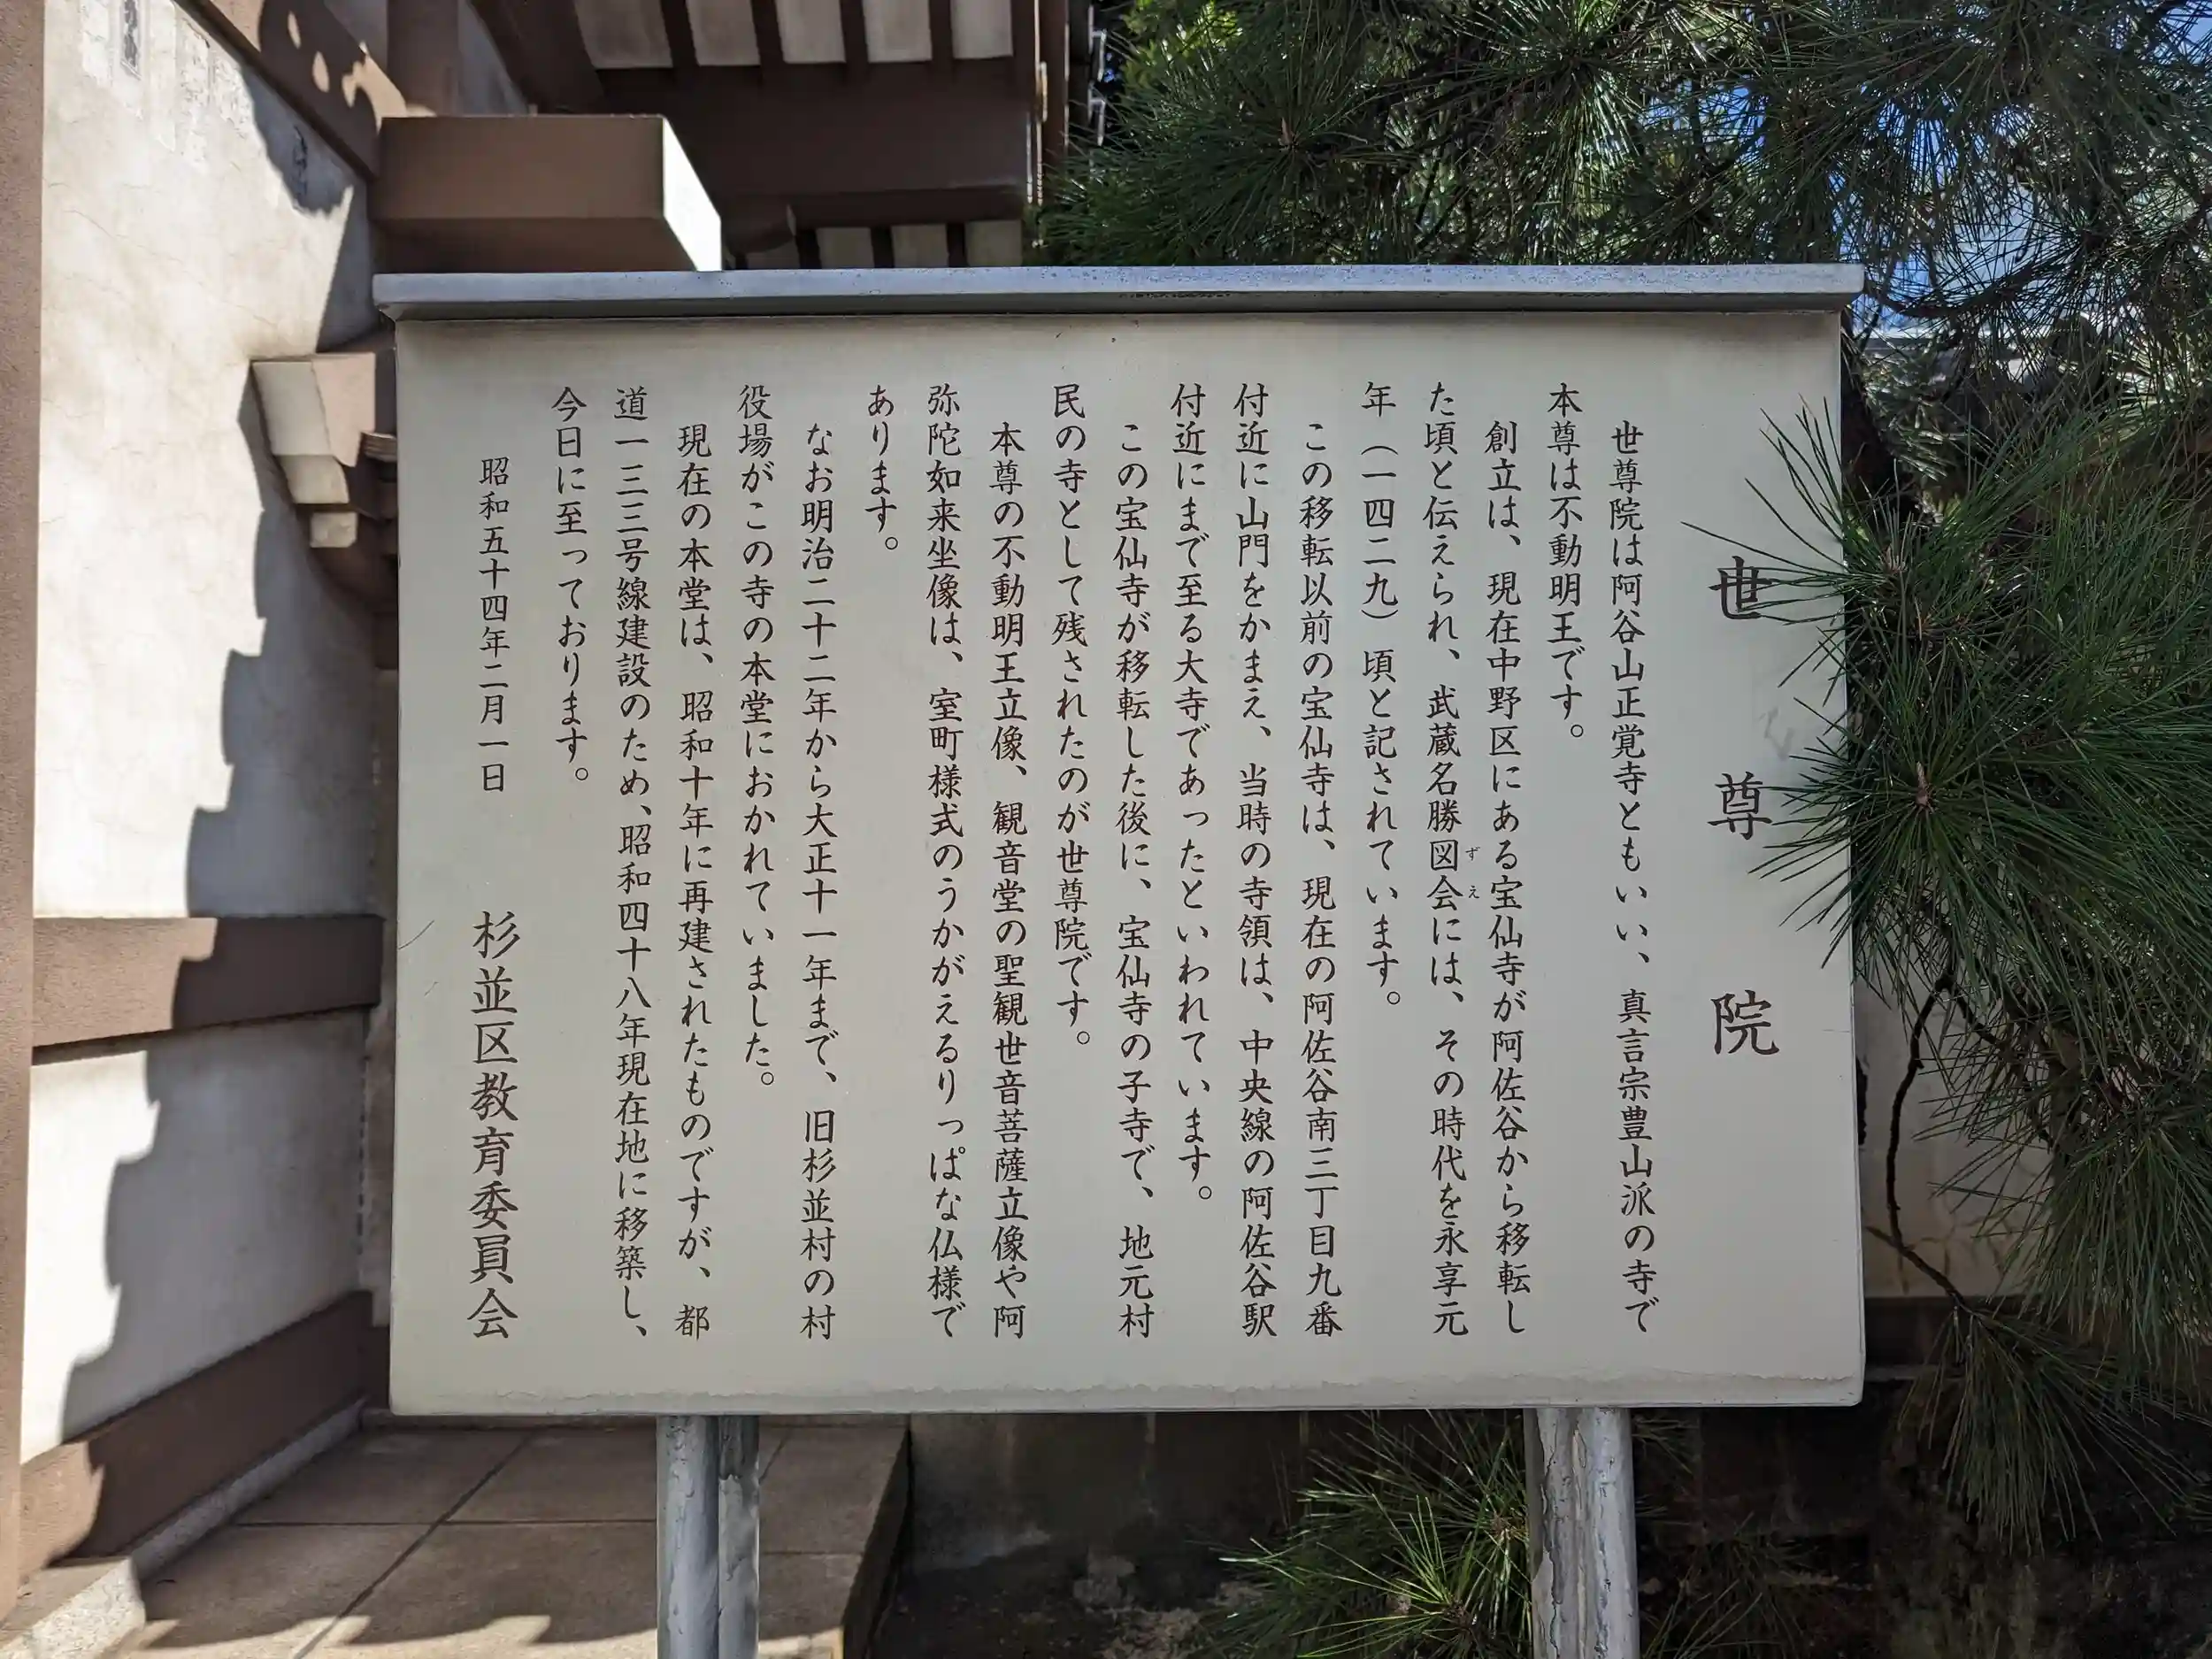 世尊院
世尊院は阿谷山正覚寺ともいい、真言宗豊山派の寺で
本尊は不動明王です。
創立は、現在中野区にある宝仙寺が阿佐谷から移転し
た頃と伝えられ、武蔵名勝図会には、その時代を永享元
ずえ
年（一四二九）頃と記されています。
この移転以前の宝仙寺は、現在の阿佐谷南三丁目九番
付近に山門をかまえ、当時の寺領は、中央線の阿佐谷駅
付近にまで至る大寺であったといわれています。
この宝仙寺が移転した後に、宝仙寺の子寺で、地元村
民の寺として残されたのが世尊院です。
本尊の不動明王立像、観音堂の聖観世音菩薩立像や阿
弥陀如来坐像は、室町様式のうかがえるりっぱな仏様で
あります。
なお明治二十二年から大正十一年まで、旧杉並村の村
役場がこの寺の本堂におかれていました。
現在の本堂は、昭和十年に再建されたものですが、都
道一三三号線建設のため、昭和四十八年現在地に移築し、
今日に至っております。
昭和五十四年二月一日
杉並区教育委員会